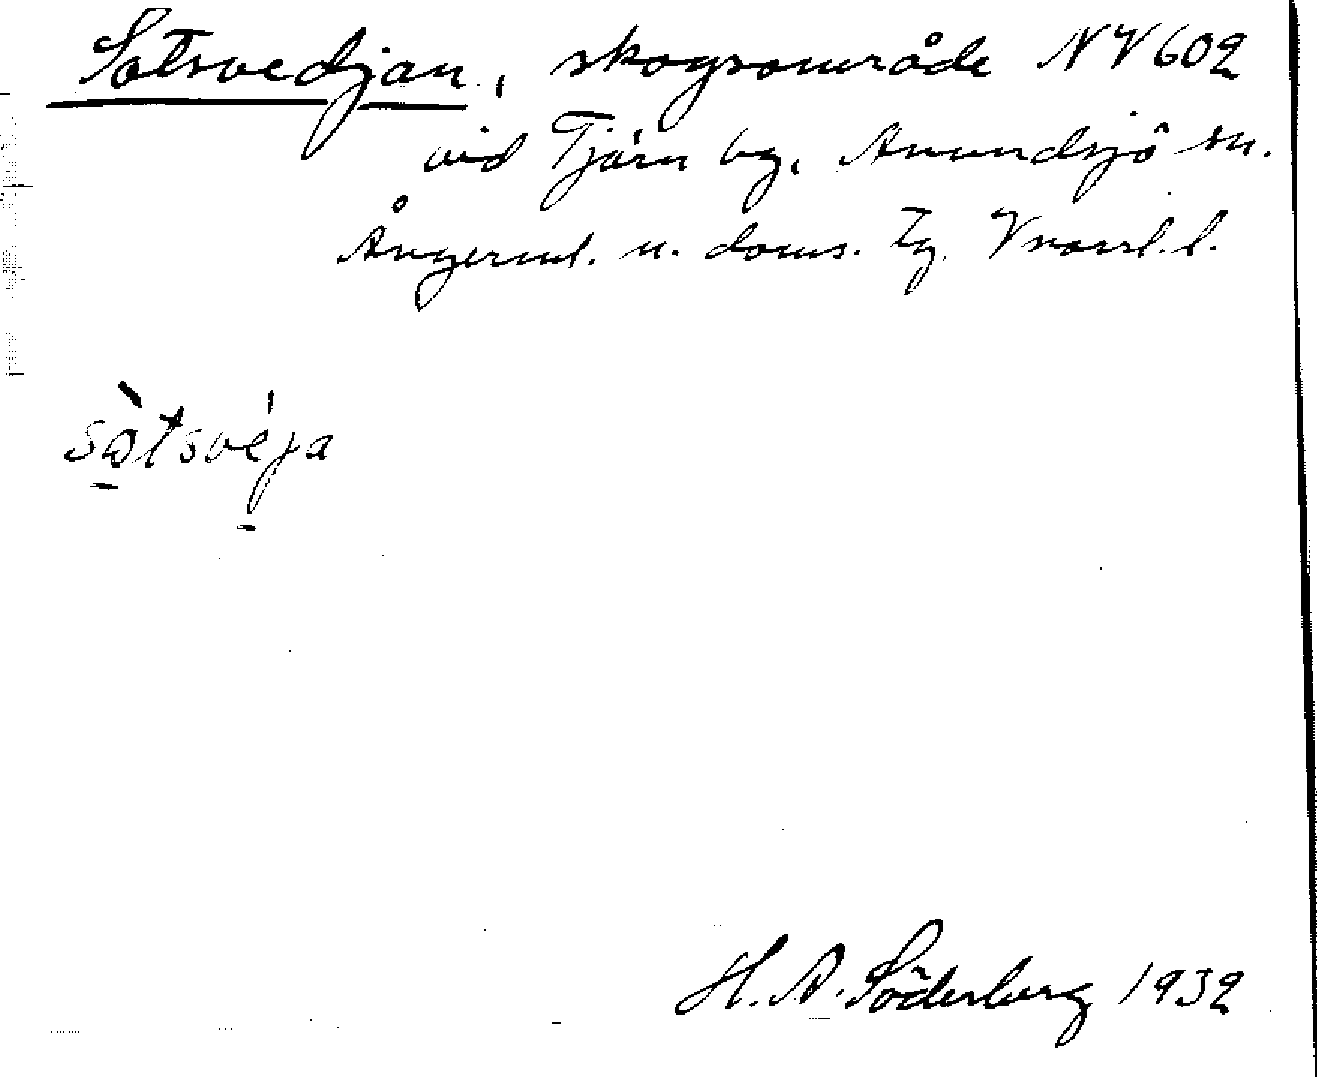 Sotsvedjan, skogsområde NV602
vid Tjärn by, Anundsjö sn.
Ångerml. n. doms. Tg. Vnorrl. l.
sòtsvéja
H. A. Söderberg 1932